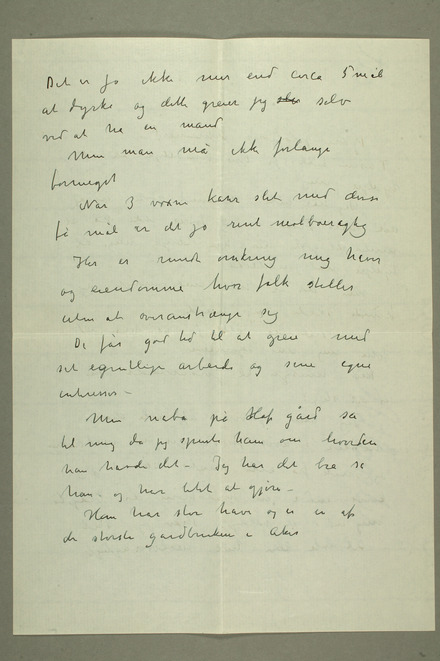 Det er jo ikke mer end circa 5 mål
at dyrke og dette greier jeg selv
ved at ha en mand
Men man må ikke forlange
formeget
Når 3 voxne kaster slet med disse
få mål er det jo rent
Her er rundt omkring mig haver
og eiendomme hvor folk steller
uten at overanstrænge sig
De får god tid til at greie med
set egentlige arbeide og sine egne
interesser –
Min nabo på gård sa
til mig da jeg spurte ham om hvordan
han hadde det – Jeg har det bra sa
han og har litet at gjøre –
Han har stor have og er en af
de største gardbruken i Aker